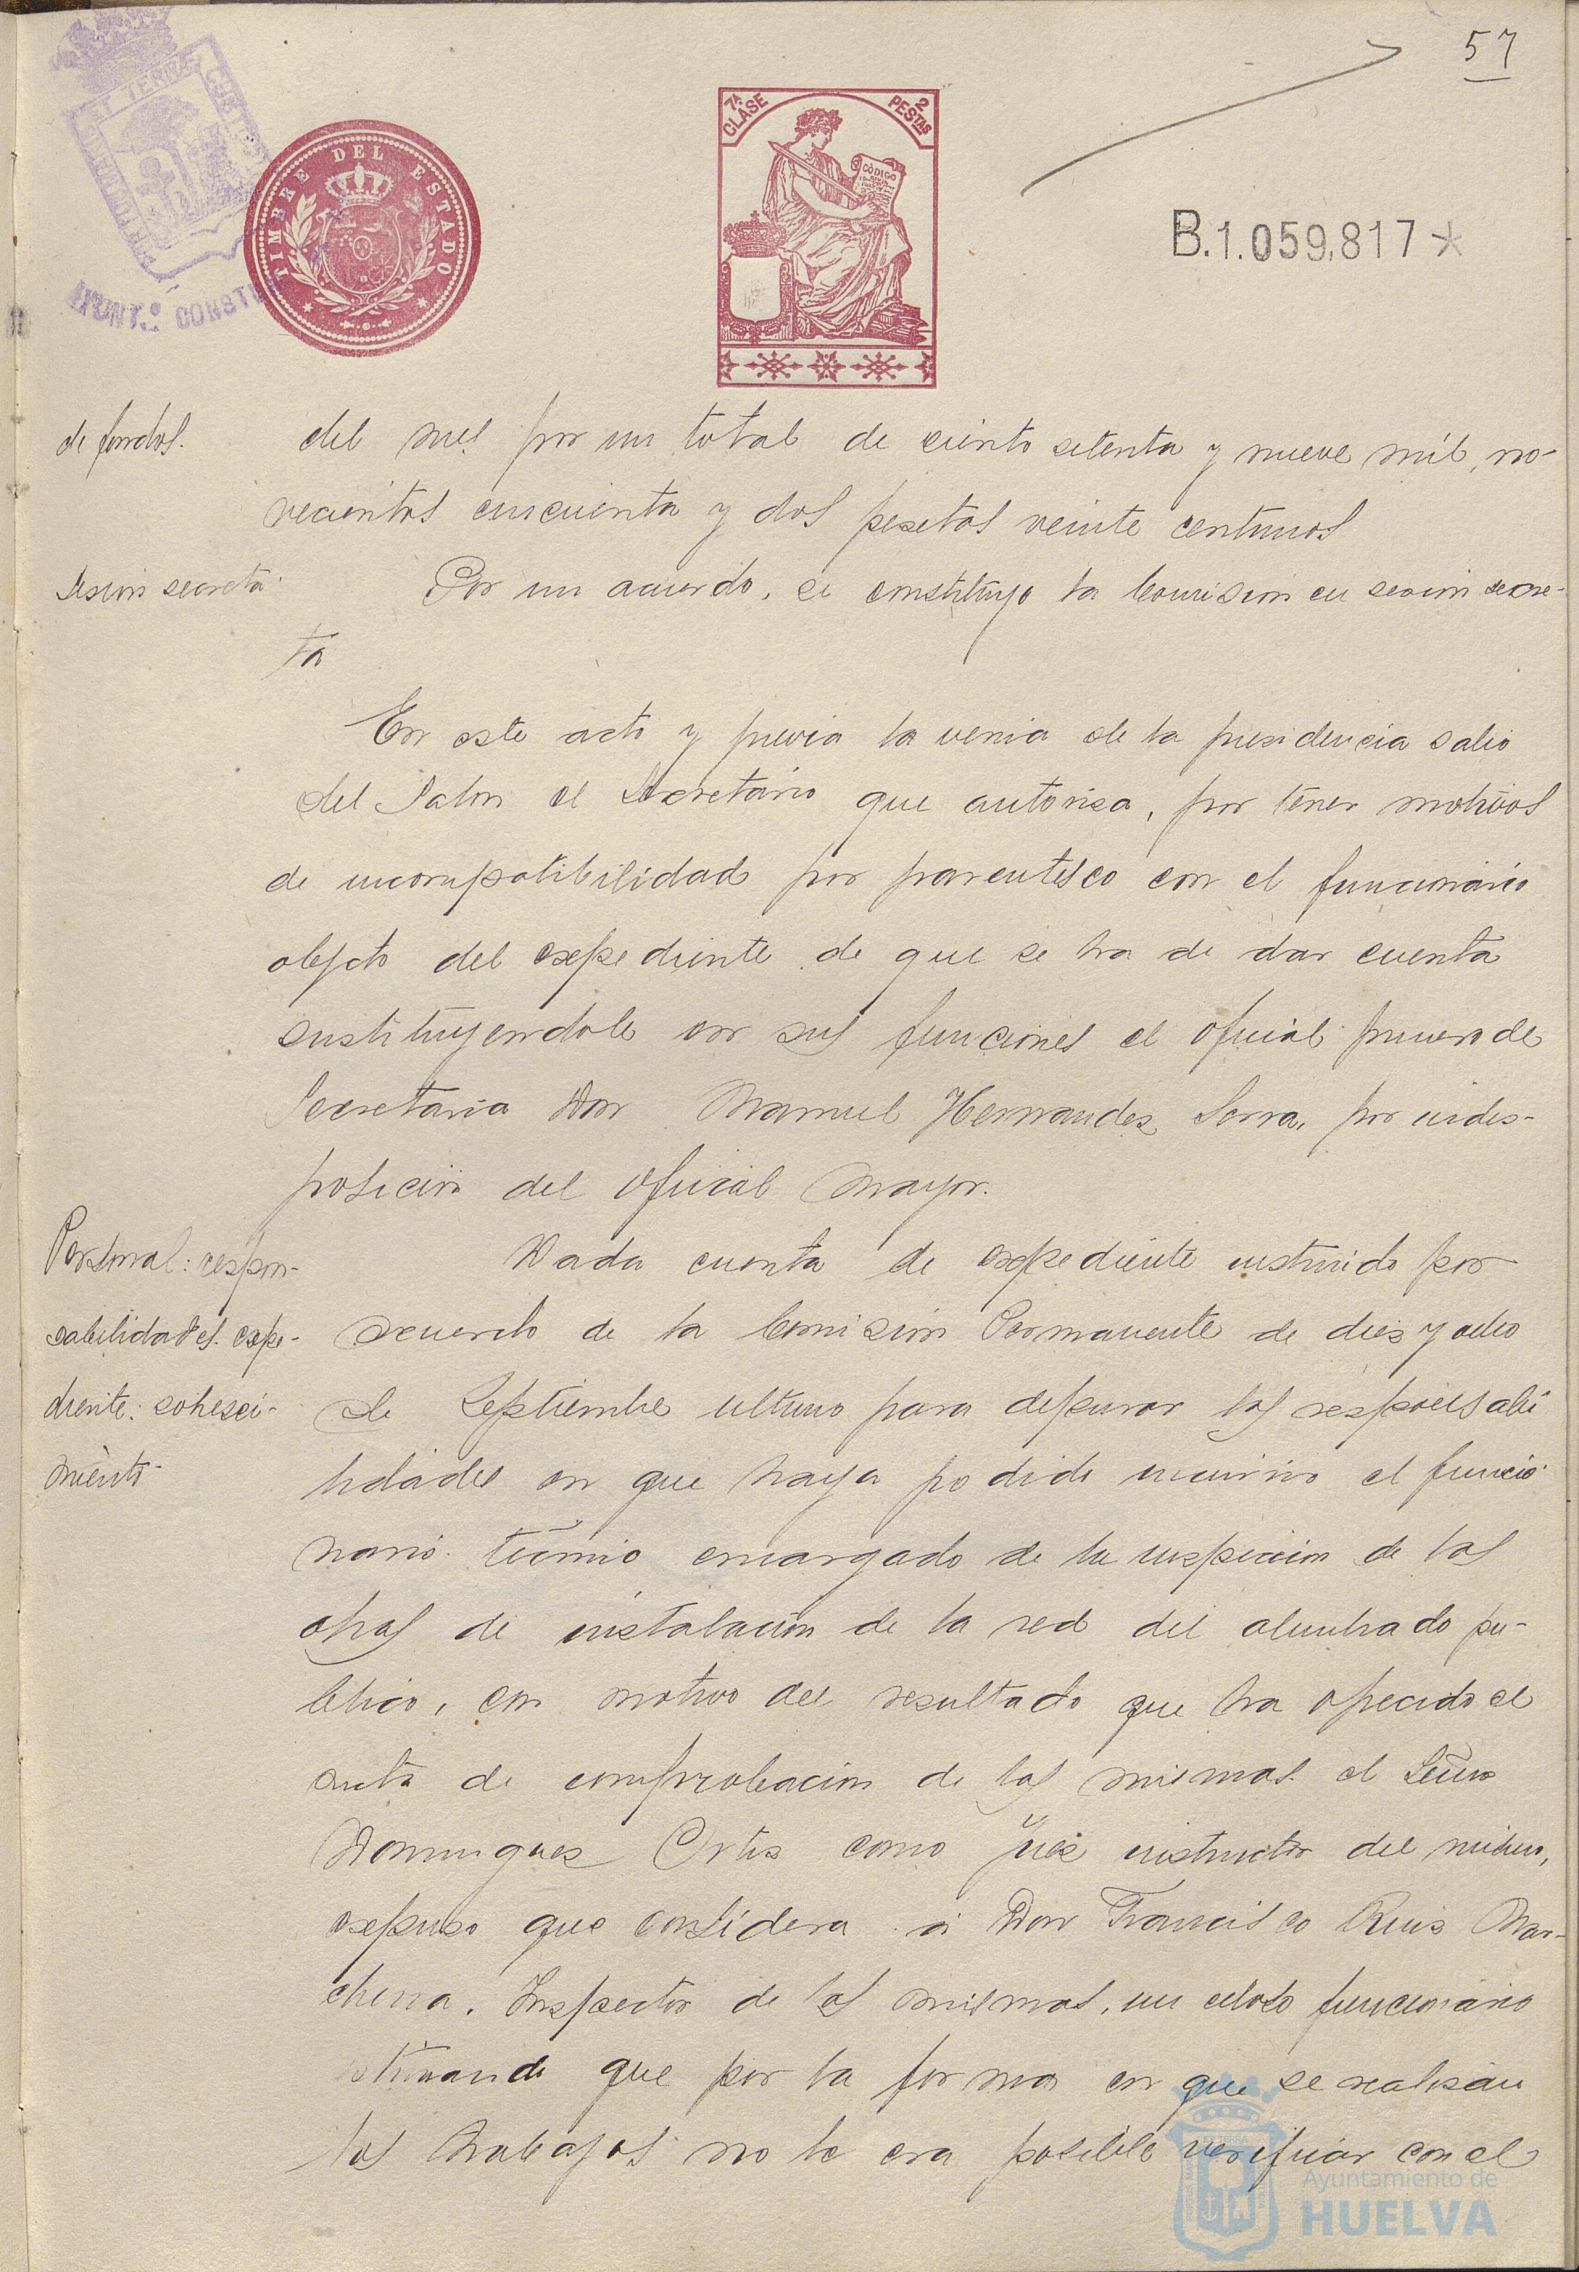 57
PORTUS MARIS ET TERRÆ CUSTODIA
AYUNT.º CONSTI
TIMBRE DEL ESTADO
7ª CLASE
2 PESTAS
CÓDIGO
B.1.059,817*
de fondos.
del mes por un total de ciento setenta y nueve mil, no-
vecientas cincuenta y dos pesetas veinte centimos
Sesion secreta
Por un acuerdo, se constituyo la Comision en sesion secre-
ta
En este acto y previa la venia de la presidencia salio
del Salon el Secretario que autoriza, por tener motivos
de incompatibilidad por parentesco con el funcionario
objeto del expediente de que se ha de dar cuenta
sustituyendole en sus funciones el oficial primero de
Secretaria Don Manuel Hernandez Serra, por indis-
posicion del oficial Mayor.
Personal: respon-
sabilidades. expe-
diente: sobresei-
miento-
Dada cuenta de expediente instruido por
acuerdo de la Comision Permanente de diez y ocho
de Septiembre ultimo para depurar las responsabi
lidades en que haya podido incurrir el funcio-
nario tecnico encargado de la inspeccion de las
obras de instalacion de la red del alumbrado pu-
blico, con motivo del resultado que ha ofrecido el
acta de comprobacion de las mismas el Señor
Dominguez Ortiz como Juez instructor del mismo,
expuso que considera a Don Francisco Ruiz Mar-
chena. Inspector de las mismas, un celoso funcionario
estimando que por la forma en que se realizan
los trabajos no le era posible verificar con el
Ayuntamiento de
HUELVA